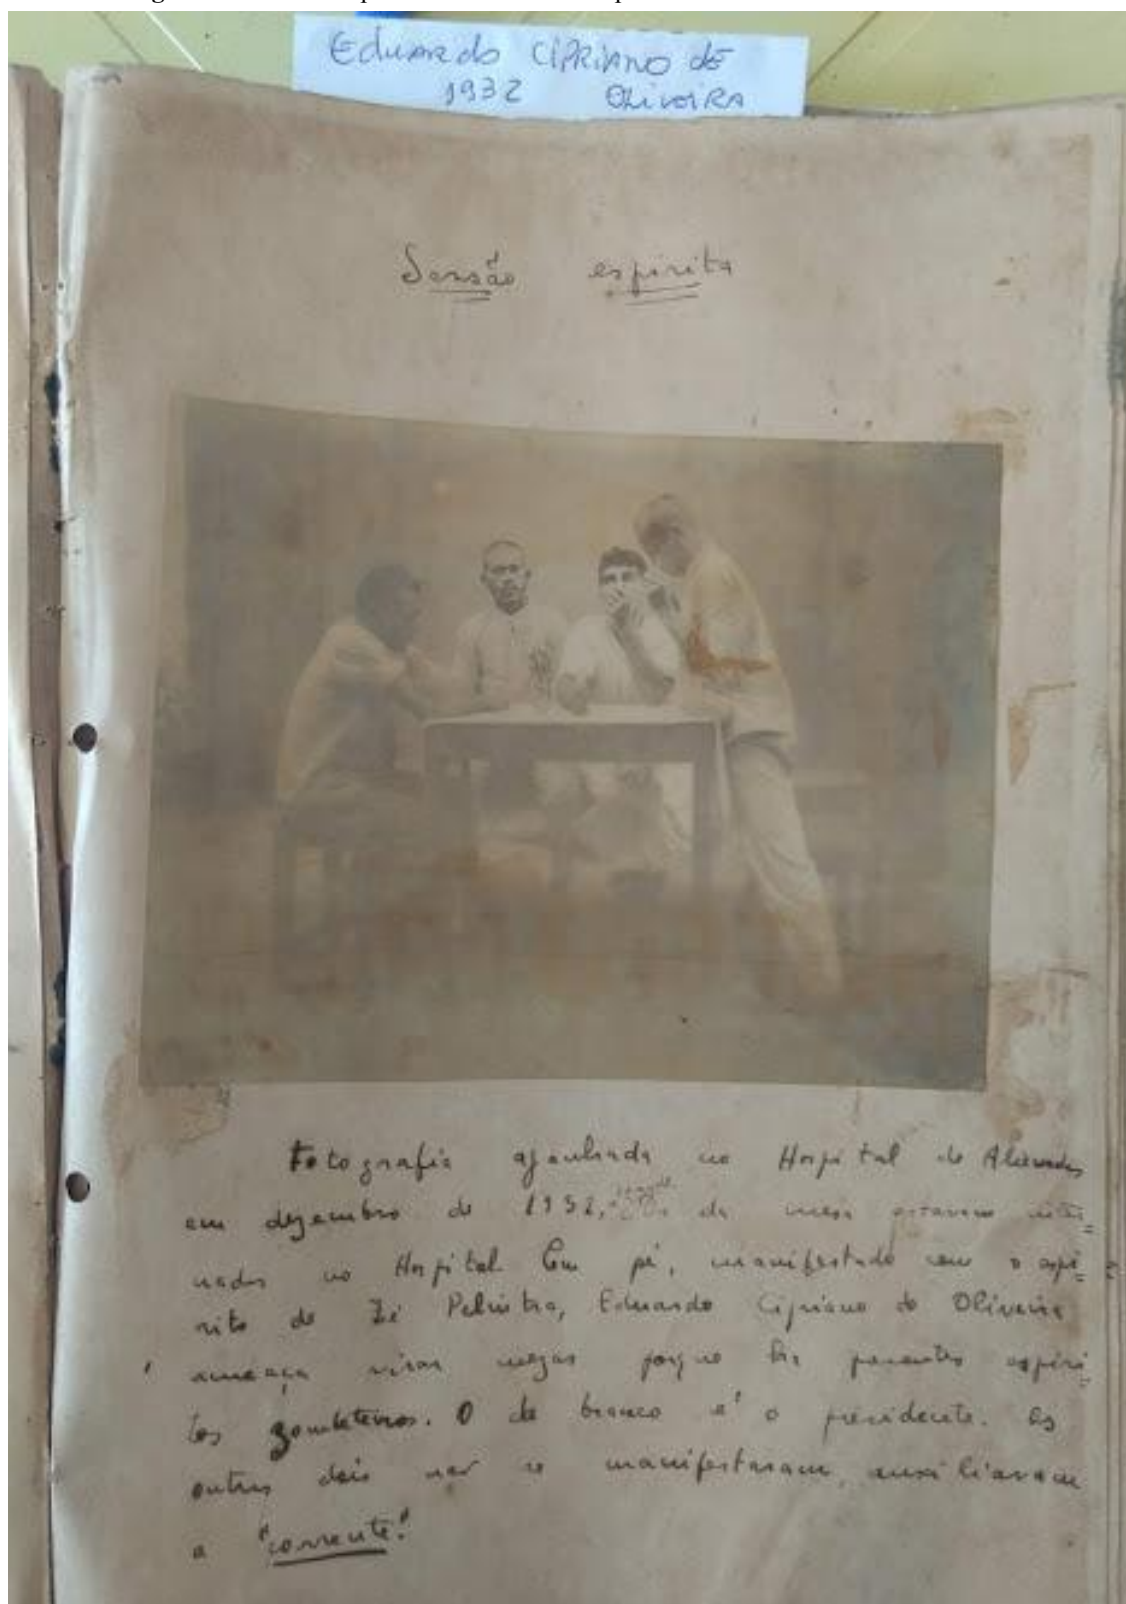 Eduardo CIPRIANO de
1932 OLiveiRA
Sessão espirita
Fotografia apanhada no Hospital de Alienados
em dezembro de 1932, da mesa estavam inter=
nados no Hospital. Em pé, manifestado com o espi=
rito de Zé Pelintra, Eduardo Cipriano de Oliveira
ameaça virar mezas porque ha presentes espiri=
tos zombeteiros. O de branco é o presidente. Os
outros dois não se manifestaram, auxiliavam
a "corrente".